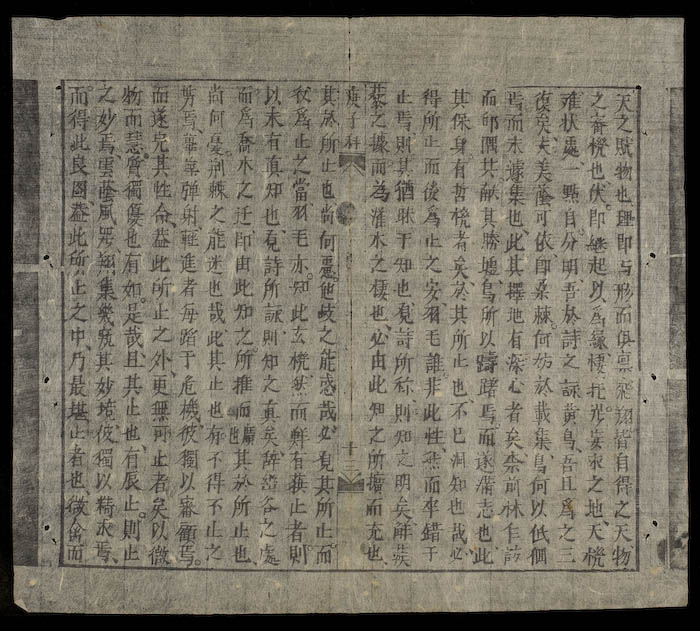 天之賦物也理即与形而俱禀飛翔皆自得之天物
之審機也伏即無起以為緣棲托先安求之地天機
难状處一點自分明吾於詩之詠黃鳥吾且為之三
復矣夫美蔭可依即桑棘何妨於載集鳥何以低佪
焉而未據集也此其擇地有深心者矣柰前林乍訪
而邱隅其献其勝墟鳥所以躊躇焉而遂備志也此
其保身有哲機者矣於其所止也不已洞知也哉必
得所止而後為止之安羽毛誰非此性然而率錯于
止焉則其猶昧于知也覓詩所称則知之明矣解蒺
藜之據而為灌木之棲也必由此知之所擴而充也
庚子科 十二
其於所止也尚何惡他岐之能惑哉必覓其所止而
後為止之當羽毛亦知此玄機然而鮮有擇止者則
以未有真知也覓詩所詠則知之真矣辞谷之處
而為喬木之迁即由此知之所推而廣也其於所止也
尚何憂荊棘之能迷也哉此其止也有不得不止之
勢焉彈射輕進者每蹈于危機彼獨以審顧焉
而遂完其性命盖此所止之外更無可止者矣以微
物而慧質獨優也有如是哉且其止也有辰止則止
之妙焉雲蔭風翔集衆覓其妙境彼獨以精求焉
而得此良圖盖此所止之中乃最堪止者也微禽而